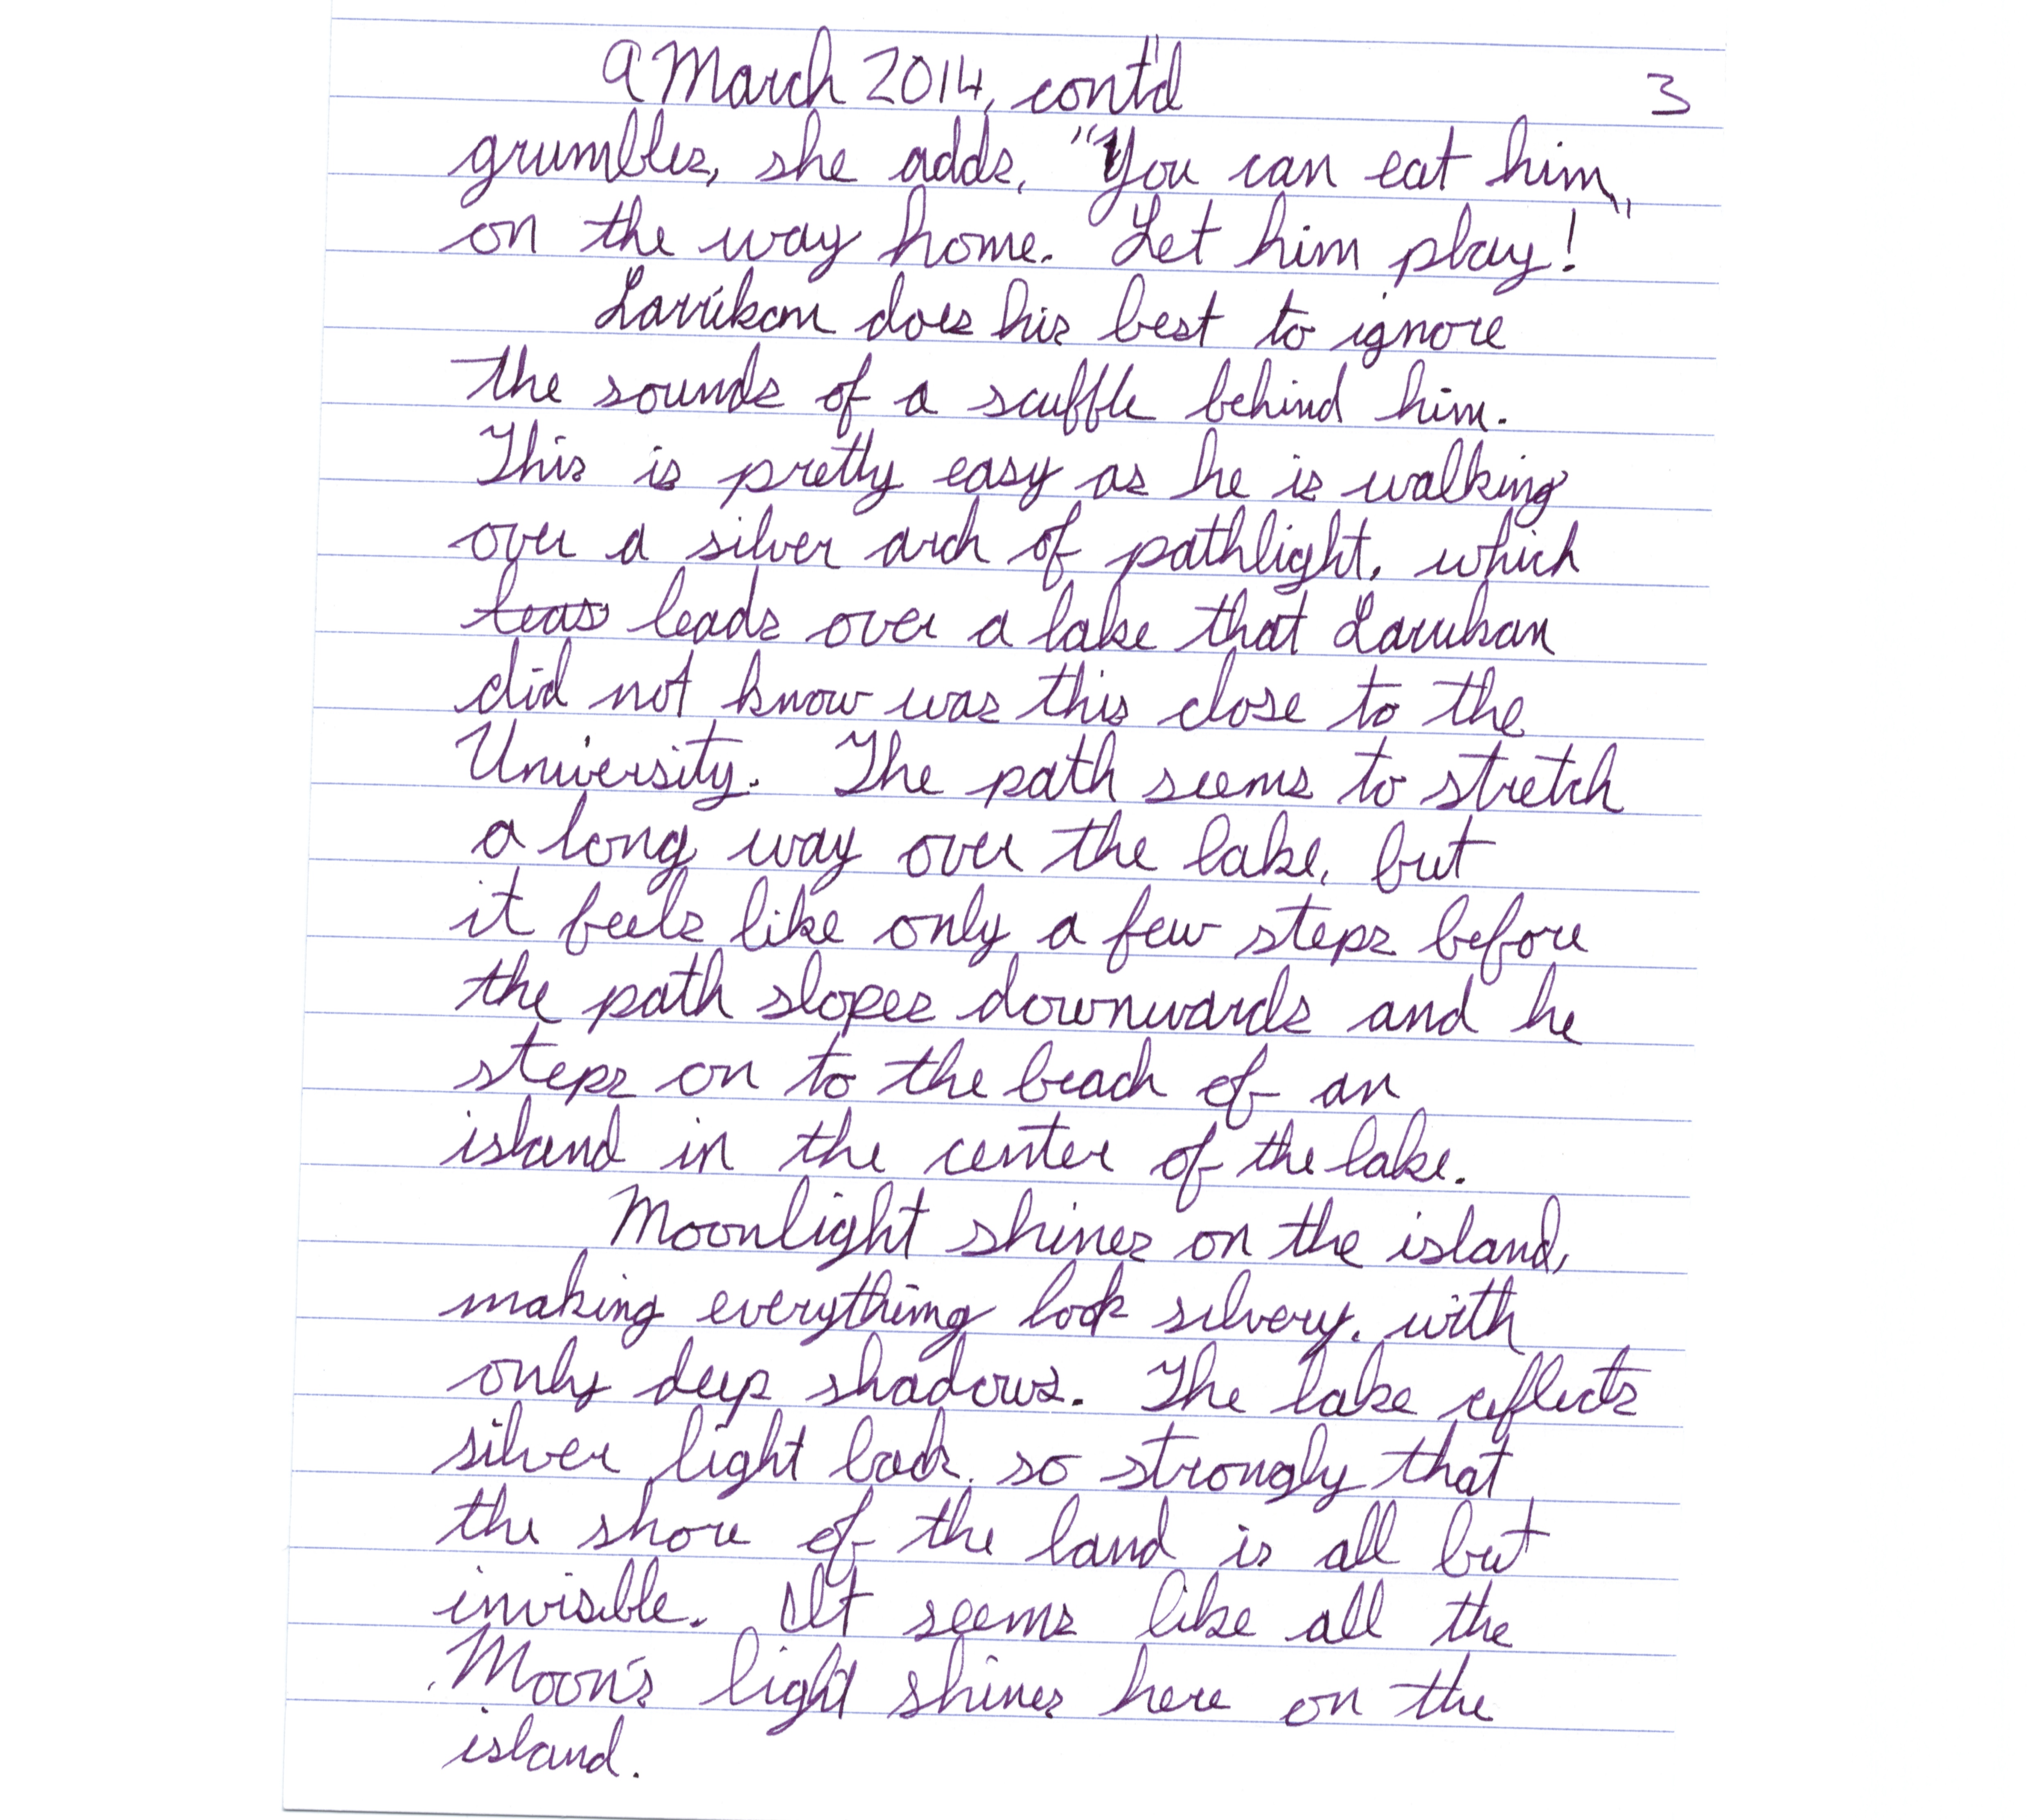 9 March 2014, cont'd 3
grumbles, she adds, "You can eat him
on the way home. Let him play!"
Larrikan does his best to ignore
the sounds of a scuffle behind him.
This is pretty easy as he is walking
over a silver arch of pathlight, which
leas leads over a lake that Larrikan
did not know was this close to the
University. The path seems to stretch
a long way over the lake, but
it feels like only a few steps before
the path slopes downwards and he
steps on to the beach of an
island in the center of the lake.
Moonlight shines on the island,
making everything look silvery, with
only deep shadows. The lake reflects
silver light back, so strongly that
the shore of the land is all but
invisible. It seems like all the
Moon's light shines here on the
island.